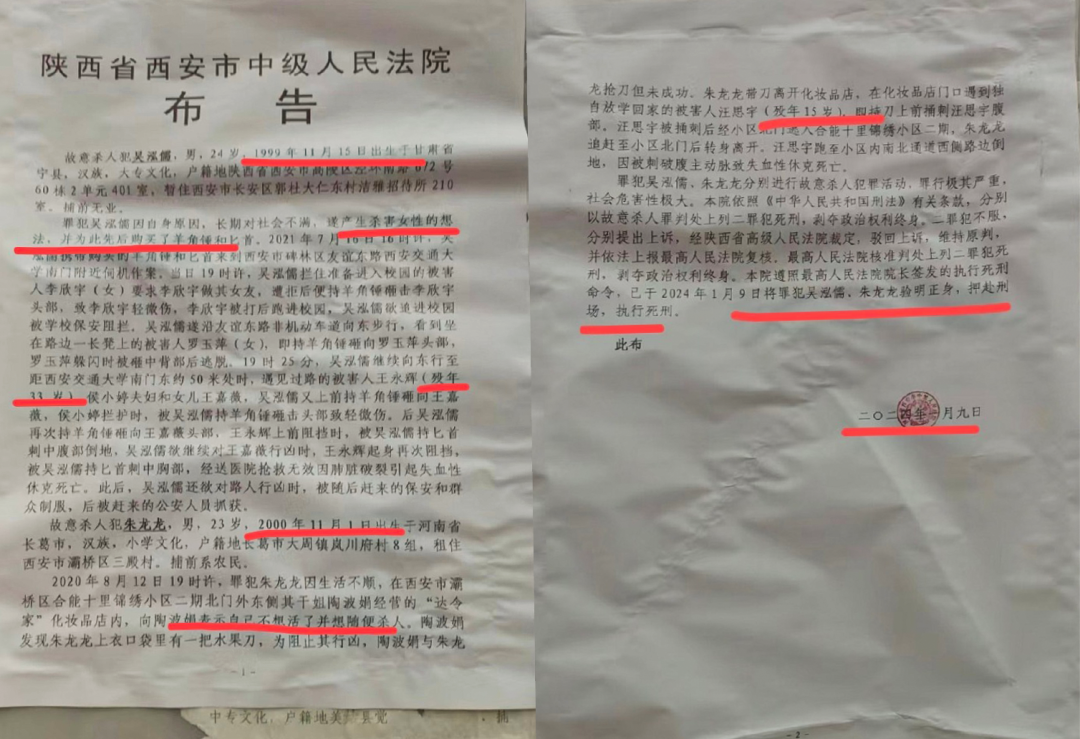 陕西省西安市中级人民法院
布 告
故意杀人犯吴泓儒，男，24岁，1999年11月15日出生于甘肃省
宁县，汉族，大专文化，户籍地陕西省西安市高陵区泾环南路672号
60栋2单元401室，暂住西安市长安区郭杜大仁东村洁雅招待所210
室。捕前无业。
罪犯吴泓儒因自身原因，长期对社会不满，遂产生杀害女性的想
法，并为此先后购买了羊角锤和匕首。2021年7月16日16时许，吴
泓儒携带购买的羊角锤和匕首来到西安市碑林区友谊东路西安交通大
学南门附近伺机作案。当日19时许，吴泓儒拦住准备进入校园的被害
人李欣宇（女）要求李欣宇做其女友，遭拒后便持羊角锤砸击李欣宇
头部，致李欣宇轻微伤，李欣宇被打后跑进校园，吴泓儒欲追进校园
被学校保安阻拦。吴泓儒遂沿友谊东路非机动车道向东步行，看到坐
在路边一长凳上的被害人罗玉萍（女），即持羊角锤砸向罗玉萍头部，
罗玉萍躲闪时被砸中背部后逃脱。19时25分，吴泓儒继续向东行至
距西安交通大学南门东约50米处时，遇见过路的被害人王永辉（殁年
33岁）、侯小婷夫妇和女儿王嘉薇，吴泓儒又上前持羊角锤砸向王嘉
薇，侯小婷拦护时，被吴泓儒持羊角锤砸击头部致轻微伤。后吴泓儒
再次持羊角锤砸向王嘉薇头部，王永辉上前阻挡时，被吴泓儒持匕首
刺中腹部倒地，吴泓儒欲继续对王嘉薇行凶时，王永辉起身再次阻挡，
被吴泓儒持匕首刺中胸部，经送医院抢救无效因肺脏破裂引起失血性
休克死亡。此后，吴泓儒还欲对路人行凶时，被随后赶来的保安和群
众制服，后被赶来的公安人员抓获。
故意杀人犯朱龙龙，男，23岁，2000年11月1日出生于河南省
长葛市，汉族，小学文化，户籍地长葛市大周镇岚川府村8组，租住
西安市灞桥区三殿村。捕前系农民。
2020年8月12日19时许，罪犯朱龙龙因生活不顺，在西安市灞
桥区合能十里锦绣小区二期北门外东侧其干姐陶波娟经营的“达令
家”化妆品店内，向陶波娟表示自己不想活了并想随便杀人。陶波娟
发现朱龙龙上衣口袋里有一把水果刀，为阻止其行凶，陶波娟与朱龙
- 1 -
中专文化，户籍地美 县党
龙抢刀但未成功。朱龙龙带刀离开化妆品店，在化妆品店门口遇到独
自放学回家的被害人汪思宇（殁年15岁），即持刀上前捅刺汪思宇腹
部。汪思宇被捅刺后经小区北门进入合能十里锦绣小区二期，朱龙龙
追赶至小区北门后转身离开。汪思宇跑至小区内南北通道西侧路边倒
地，因被刺破腹主动脉致失血性休克死亡。
罪犯吴泓儒、朱龙龙分别进行故意杀人犯罪活动，罪行极其严重，
社会危害性极大。本院依照《中华人民共和国刑法》有关条款，分别
以故意杀人罪判处上列二罪犯死刑，剥夺政治权利终身。二罪犯不服，
分别提出上诉，经陕西省高级人民法院裁定，驳回上诉，维持原判，
并依法上报最高人民法院复核。最高人民法院核准判处上列二罪犯死
刑，剥夺政治权利终身。本院遵照最高人民法院院长签发的执行死刑
命令，已于2024年1月9日将罪犯吴泓儒、朱龙龙验明正身，押赴刑
场，执行死刑。
此布
二〇二四年一月九日
- 2 -